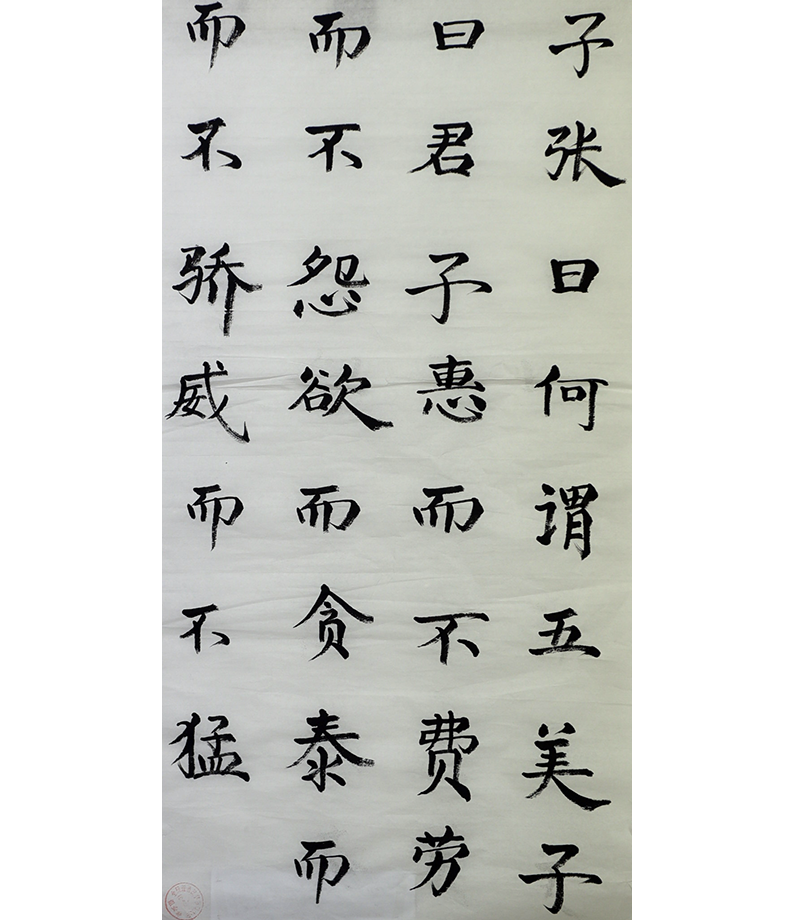 子张曰何谓五美子
曰君子惠而不费劳
而不怨欲而贪泰而
而不骄威而不猛